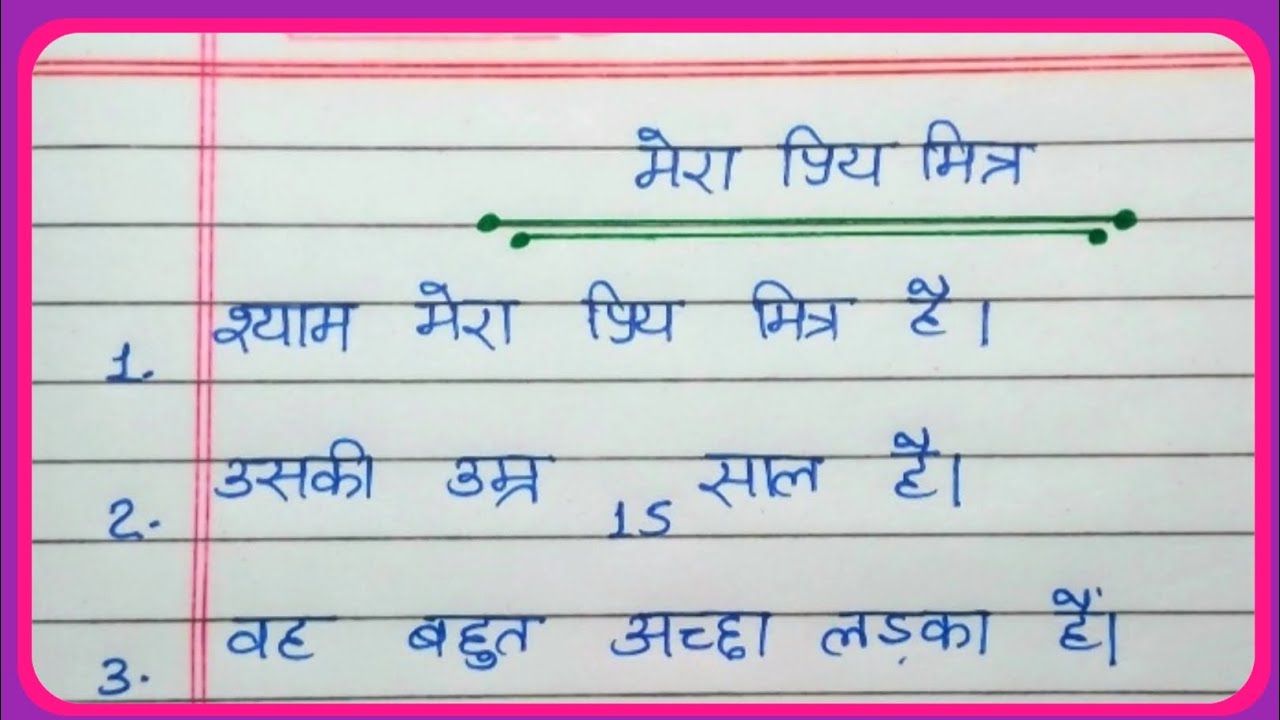 मेरा प्रिय मित्र
1. श्याम मेरा प्रिय मित्र है।
2. उसकी उम्र 15 साल है।
3. वह बहुत अच्छा लड़का हैं।